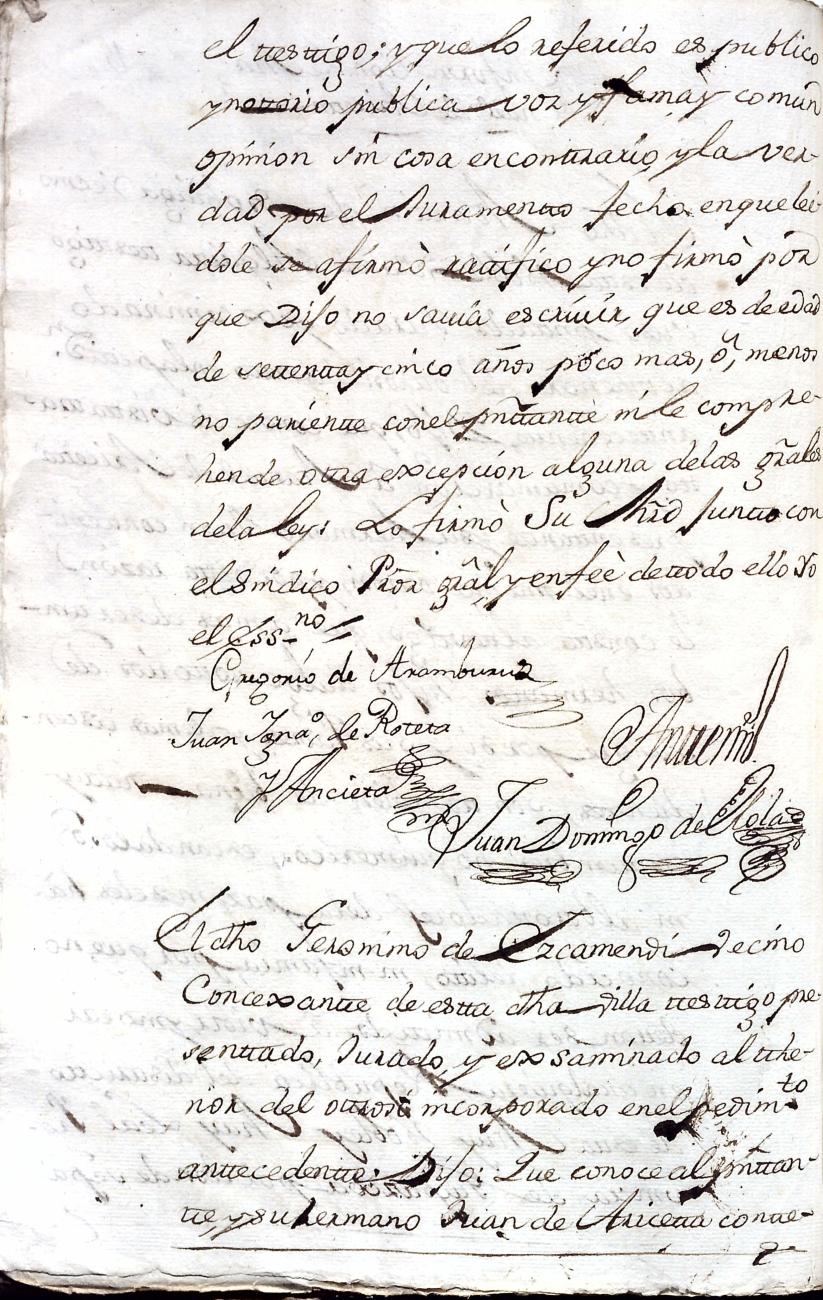 el testtigo; y que lo referido es publico
y nottorio publica voz y fama y comun
opinion sin cosa en conttrario, y la ver-
dad por el Juramentto fecho en que lei-
dole se afirmò rattifico y no firmò por
que Dijo no savia escrivir, que es de edad
de settenttay cinco años poco mas, ô, menos
no parientte con el pñttantte ni le compre-
hende ottra excepcion alguna de las grãles
de la ley: Lo firmò Su Mrd Juntto con
el Sindico Pror grãl y en feè de ttodo ello Yo
el Ess-no =
Gregorio de Aramburu
Juan Ignaº, de Roteta
y Ancieta
Anttemi
Juan Domingo de
El dho Geronimo de Ezcamendi vecino
Concexantte de estta dha villa ttesttigo pre-
senttado, Jurado, y exsaminado al tthe-
nor del ottrosi incorporado en el pedimto
anttecedentte: Dijo: Que conoce al pñttan-
tte, y su hermano Juan de Aricetta contte-